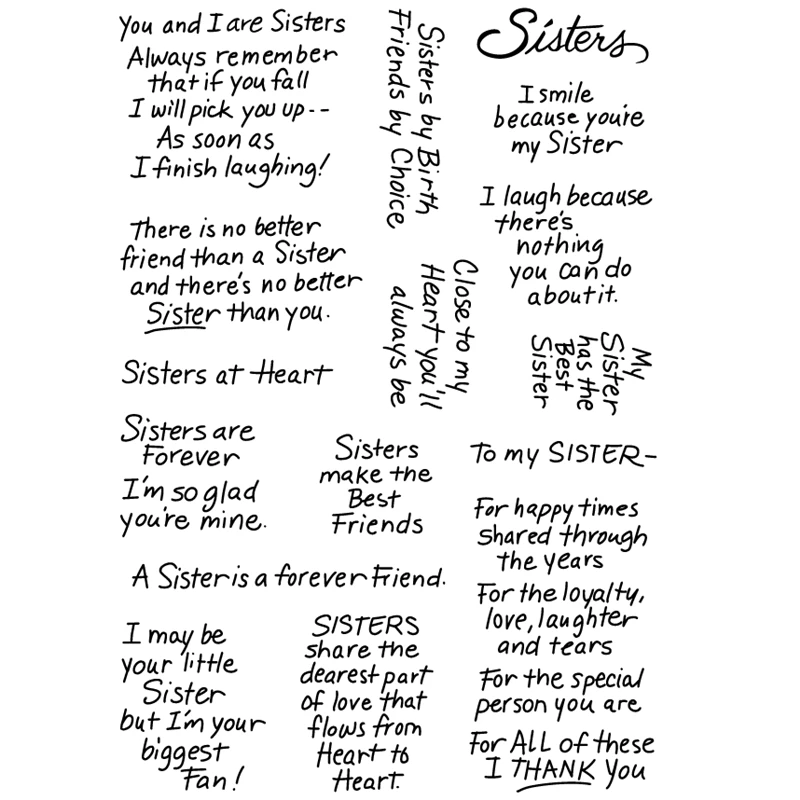 You and I are Sisters
Always remember
that if you fall
I will pick you up--
As soon as
I finish laughing!
There is no better
friend than a Sister
and there's no better
Sister than you.
Sisters at Heart
Sisters are
Forever
I'm so glad
you're mine.
Sisters by Birth
Friends by Choice
Close to my
Heart you'll
always be
Sisters
make the
Best
Friends
A Sister is a forever Friend.
I may be
your little
Sister
but I'm your
biggest
Fan!
SISTERS
share the
dearest part
of love that
flows from
Heart to
Heart.
Sisters
I smile
because you're
my Sister
I laugh because
there's
nothing
you can do
about it.
My
Sister
has the
Best
Sister
To my SISTER-
For happy times
shared through
the years
For the loyalty,
love, laughter
and tears
For the special
person you are
For ALL of these
I THANK You